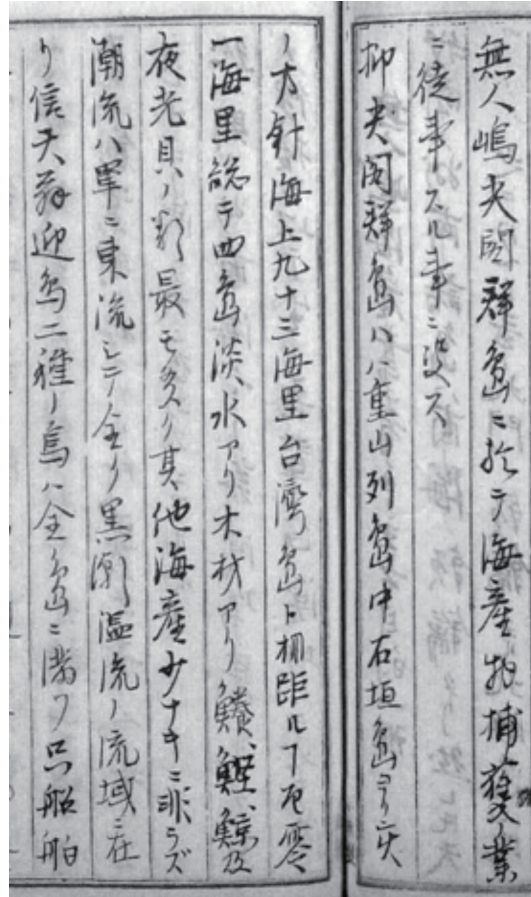 無人嶋尖閣群島ニ於テ海産物捕獲ノ業
ニ従事スル事ニ決ス
抑尖閣群島ハ八重山列島中石垣島ヨリ
ノ方針海上九十三海里台湾島ト相距ルヿ百零
一海里総テ四島淡水アリ木材アリ鱶、鰹、鯨及
夜光貝ノ類最モ多ク其他海産少ナキニ非ラズ
潮流ハ単ニ東流シテ全ク黒潮温流ノ流域ニ在
リ信天翁迎鳥二種ノ鳥ハ全島ニ満ツ只船舶